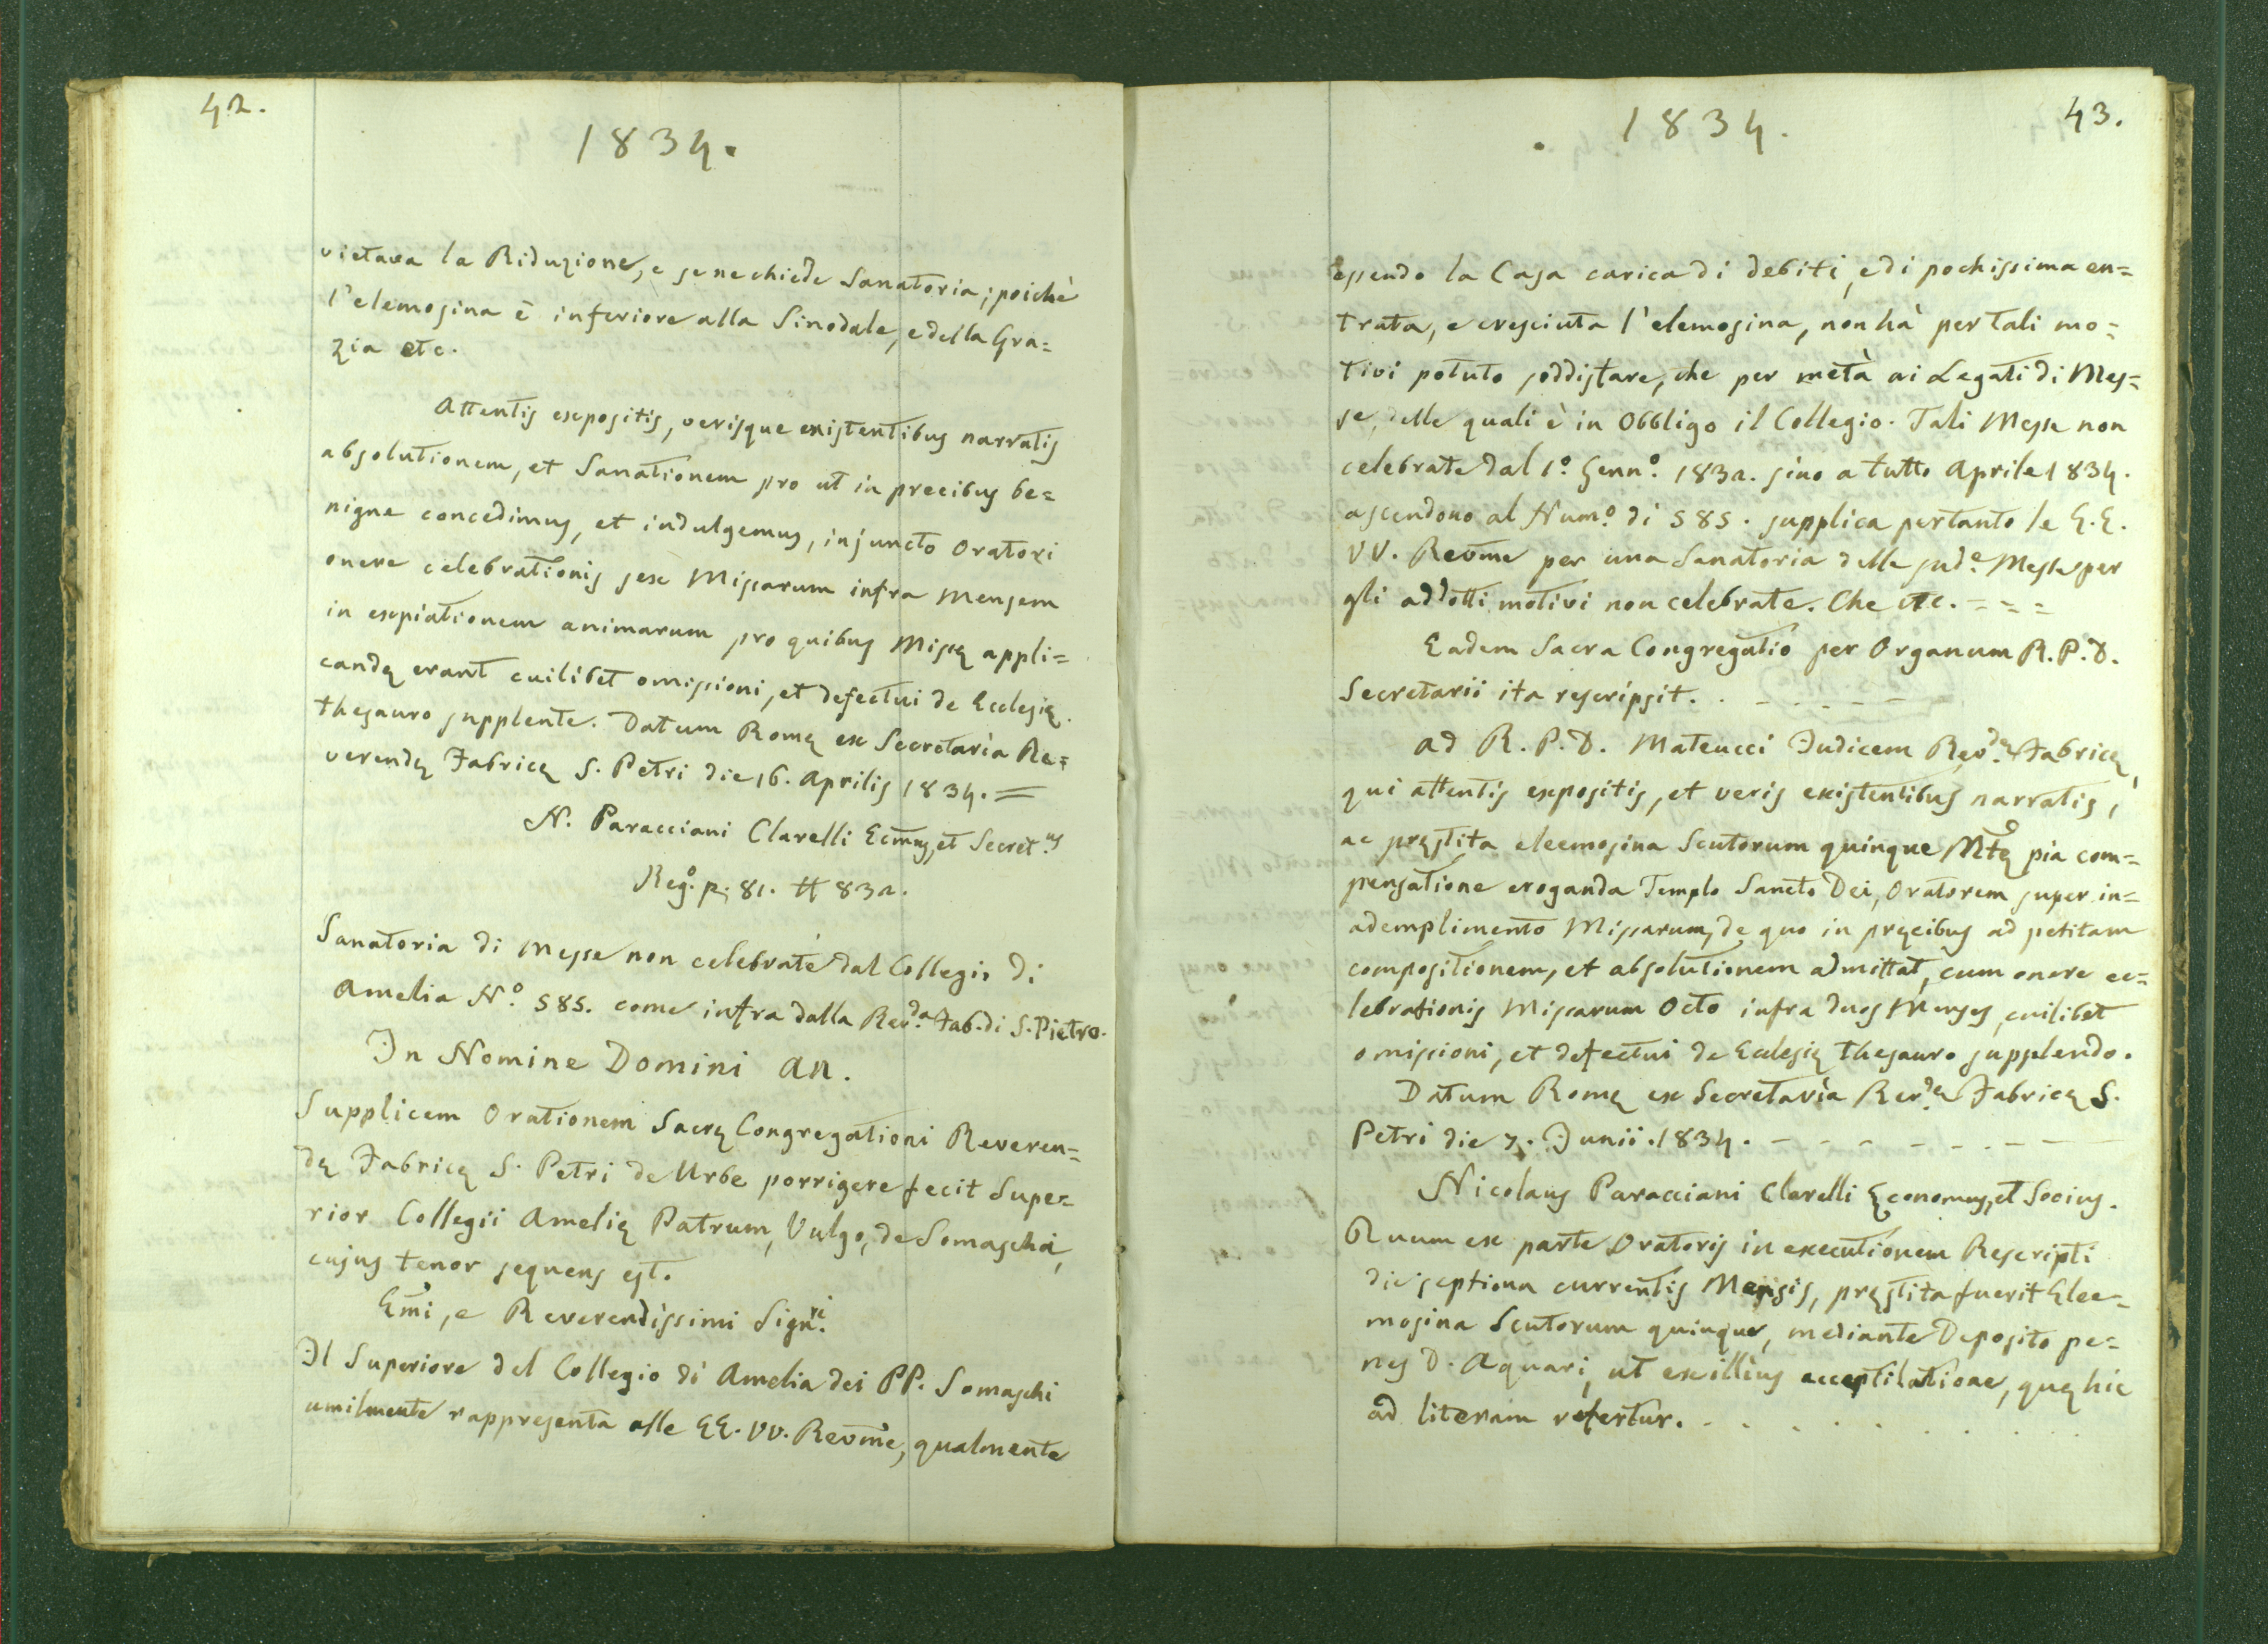 42.
1834.
vietava la Riduzione, e se ne chiede Sanatoria; poichè
l'elemosina è inferiore alla Sinodale, e della Gra=
zia etc.
Attentis expositis, verisque existentibus narratis
absolutionem, et Sanationem pro ut in precibus be=
nigne concedimus, et indulgemus, injuncto Oratori
onere celebrationis sex Missarum infra Mensem
in expiationem animarum pro quibus Missę appli=
candę erant cuilibet omissioni, et defectui de Ecclesię
thesauro supplente. Datum Romę ex Secretaria Re=
verendę Fabricę S. Petri die 16. Aprilis 1834. =
N. Paracciani Clarelli Ecm̃us, et Secret.us
Reg.o p. 81. # 832.
Sanatoria di Messe non celebrate dal Collegio di
Amelia N.o 585. come infra dalla Rev.da Fab. di S. Pietro.
In Nomine Domini An.
Supplicem Orationem Sacrę Congregationi Reveren=
dę Fabricę S. Petri de Urbe porrigere fecit Supe=
rior Collegii Amelię Patrum, Vulgo, de Somascha,
cujus tenor sequens est.
Em̃i, e Reverendissimi Sign.ri
Il Superiore del Collegio di Amelia dei PP. Somaschi
umilmente rappresenta alle EE. VV. Revm̃e, qualmente
43.
. 1834.
essendo la Casa carica di debiti, e di pochissima en=
trata, e cresciuta l'elemosina, non hà per tali mo=
tivi potuto soddisfare, che per metà ai Legati di Mes=
se, delle quali è in Obbligo il Collegio. Tali Messe non
celebrate dal 1.o Genn.o 1832. sino a tutto Aprile 1834.
ascendono al Num.o di 585. supplica pertanto le E.E.
VV. Revm̃e per una Sanatoria delle sud.e Messe per
gli addotti motivi non celebrate. Che etc. = = =
Eadem Sacra Congregatio per Organum R.P.D.
Secretarii ita rescripsit. . - . . - - -
Ad R. P. D. Mateucci Judicem Rev.dę Fabricę,
qui attentis expositis, et veris existentibus narratis,
ac pręstita eleemosina Scutorum quinque Mtę pia com=
pensatione eroganda Templo Sancto Dei, Oratorem super in=
adempliménto Missarum, de quo in pręcibus ad petitam
compositionem, et absolutionem admittat, cum onere ce=
lebrationis Missarum Octo infra duos Menses, cuilibet
omissioni, et defectui de Ecclesię thesauro supplendo.
Datum Romę ex Secretaria Rev.dę Fabricę S.
Petri die 7. Junii. 1834. - - - - - - - - -
Nicolaus Paracciani Clarelli Ęconomus, et Socius.
Quum ex parte Oratoris in executionem Rescripti
die septima currentis Mensis, pręstita fuerit Elee=
mosina Scutorum quinque, mediante Deposito pe=
nes D. Aquari, ut ex illius acceptilatione, quę hic
ad literam refertur. . . . . . . . . .